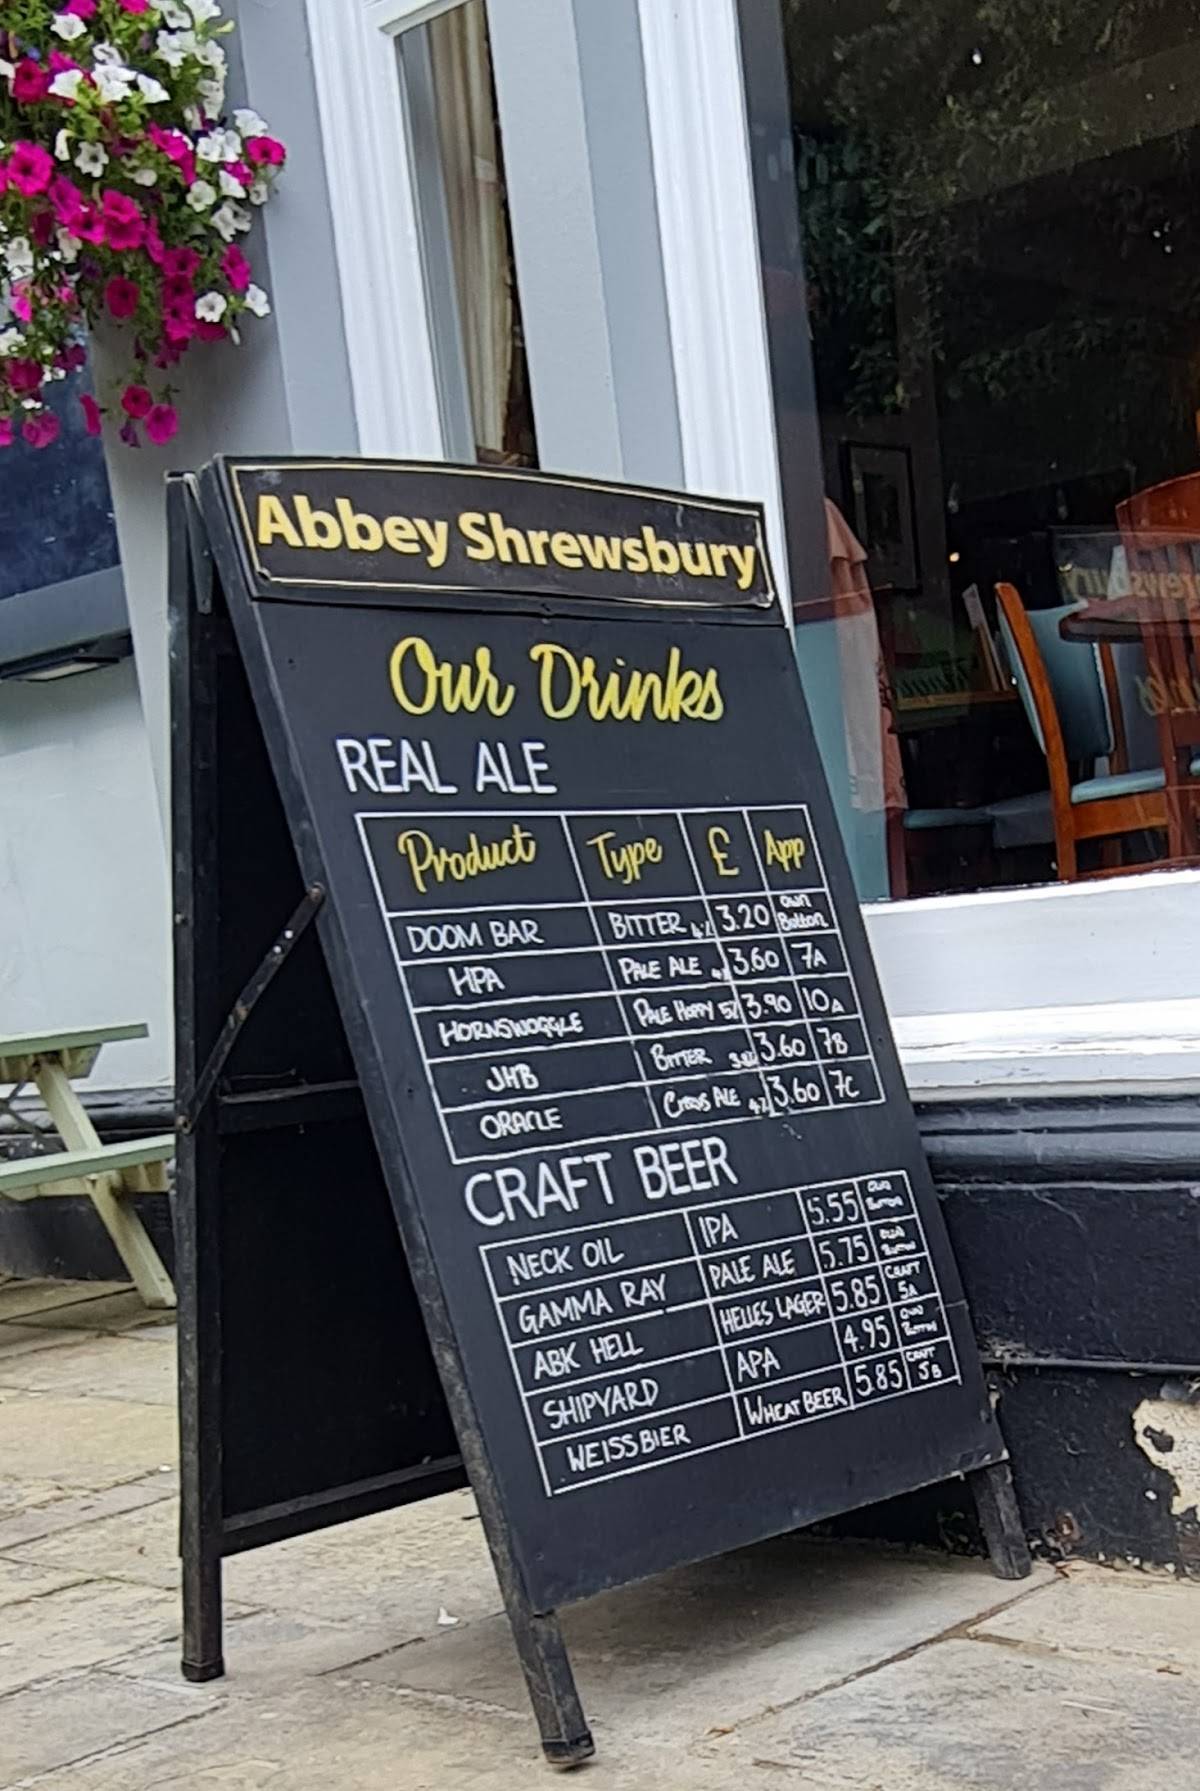 Abbey Shrewsbury
Our Drinks
REAL ALE
Product Type £ App
DOOM BAR BITTER 4% 3.20 own Button
HPA PALE ALE 3.60 7A
HORNSWOGGLE PALE HOPPY 5% 3.90 10A
JHB BITTER 3.60 7B
ORACLE ALE 4% 3.60 7C
CRAFT BEER
NECK OIL IPA 5.55 OWN BUTTON
GAMMA RAY PALE ALE 5.75 OWN BUTTON
ABK HELL HELLES LAGER 5.85 CRAFT 5A
SHIPYARD APA 4.95 OWN BUTTON
WEISSBIER WHEAT BEER 5.85 CRAFT 5B